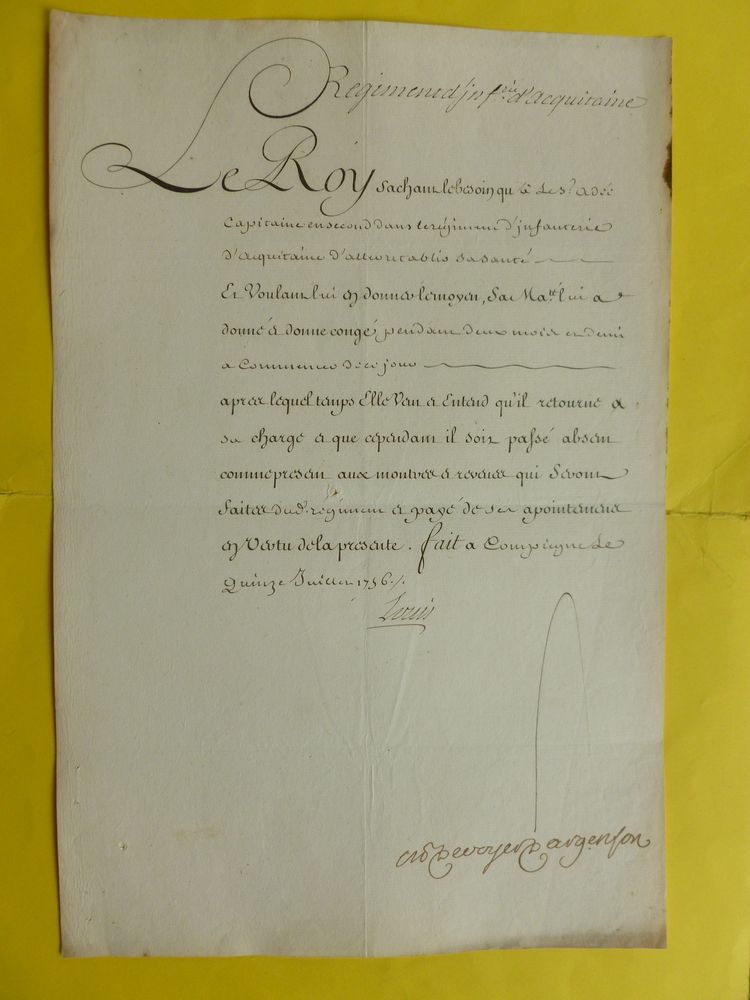 Regiment d'jnf.rie d'acquitaine
Le Roy sachant le besoin qu'a le Sr.
Capitaine en second dans le régiment d'jnfanterie
d'acquitaine d'aller rétablir sa santé
Et Voulant lui en donner le moyen, Sa Maté. lui a
donné et donne congé pendant deux mois et demi
a Commencer de ce jour
apres lequel temps Elle Veut et Entend qu'il retourne a
sa charge et que cependant il soit passé absent
comme present aux montres et reveues qui Seront
faites dud. régiment et payé de ses apointements
en Vertu de la presente. fait a Compiegne Le
Quinze Juillet 1756./.
Louis
De voyer D argenson